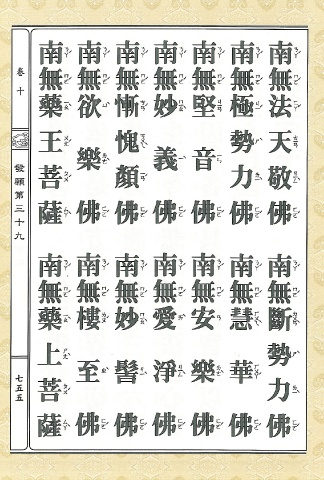 南無法天敬佛
南無斷勢力佛
南無極勢力佛
南無慧華佛
南無堅音佛
南無安樂佛
南無妙義佛
南無愛淨佛
南無慚愧顏佛
南無妙髻佛
南無欲樂佛
南無樓至佛
南無藥王菩薩
南無藥上菩薩
卷十
發願第三十九
七五五